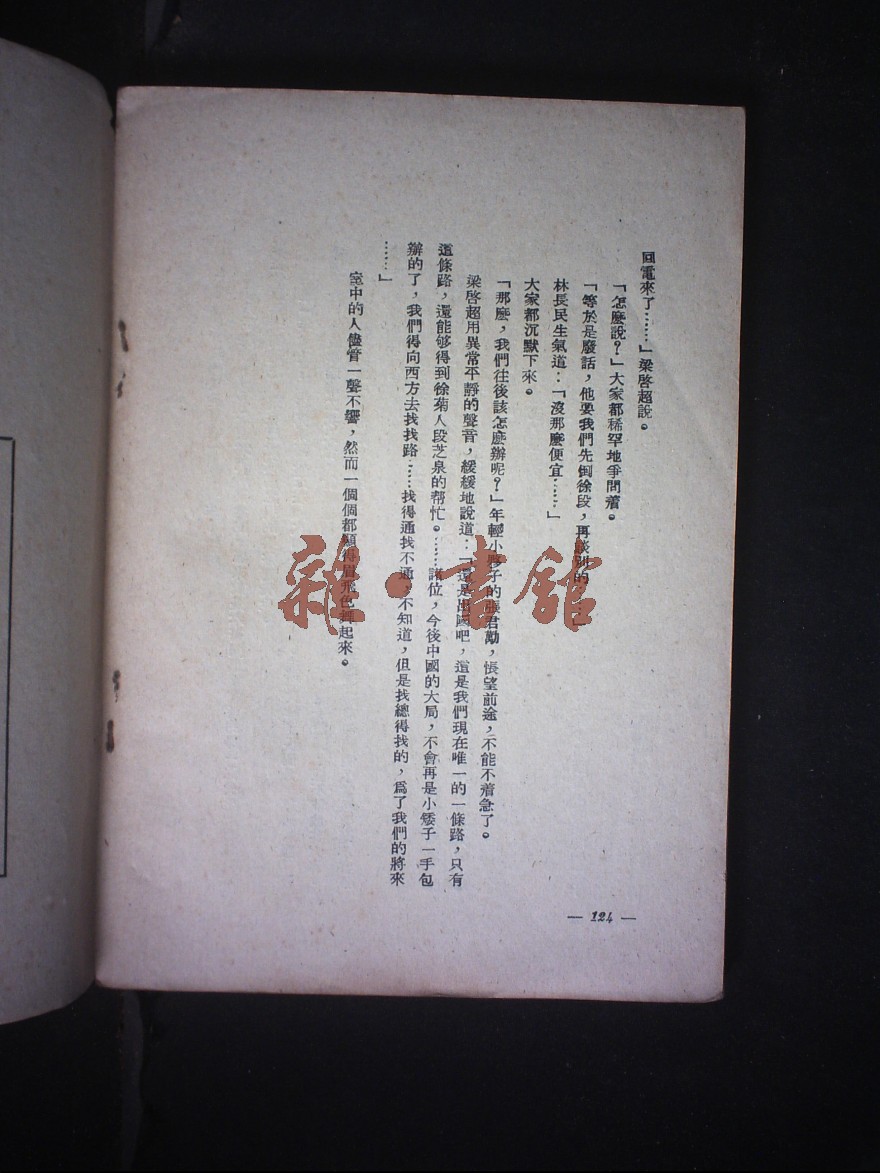 回電來了……」梁啓超說。
「怎麽說？」大家都稀罕地爭問着。
「等於是廢話，他要我們先倒徐段，再談別的……」
林長民生氣道：「沒那麽便宜……」
大家都沉默下來。
「那麽，我們往後該怎麽辦呢？」年輕小夥子的張君勱，悵望前途，不能不着急了。
梁啓超用異常平靜的聲音，緩緩地說道：「還是出國吧，這是我們現在唯一的一條路，只有
這條路，還能够得到徐菊人段芝泉的帮忙。……諸位，今後中國的大局，不會再是小矮子一手包
辦的了，我們得向西方去找找路……找得通找不通，不知道，但是找總得找的，爲了我們的將來
……」
室中的人儘管一聲不響，然而一個個都顯得眉飛色舞起來。
— 124 —
雜·書館